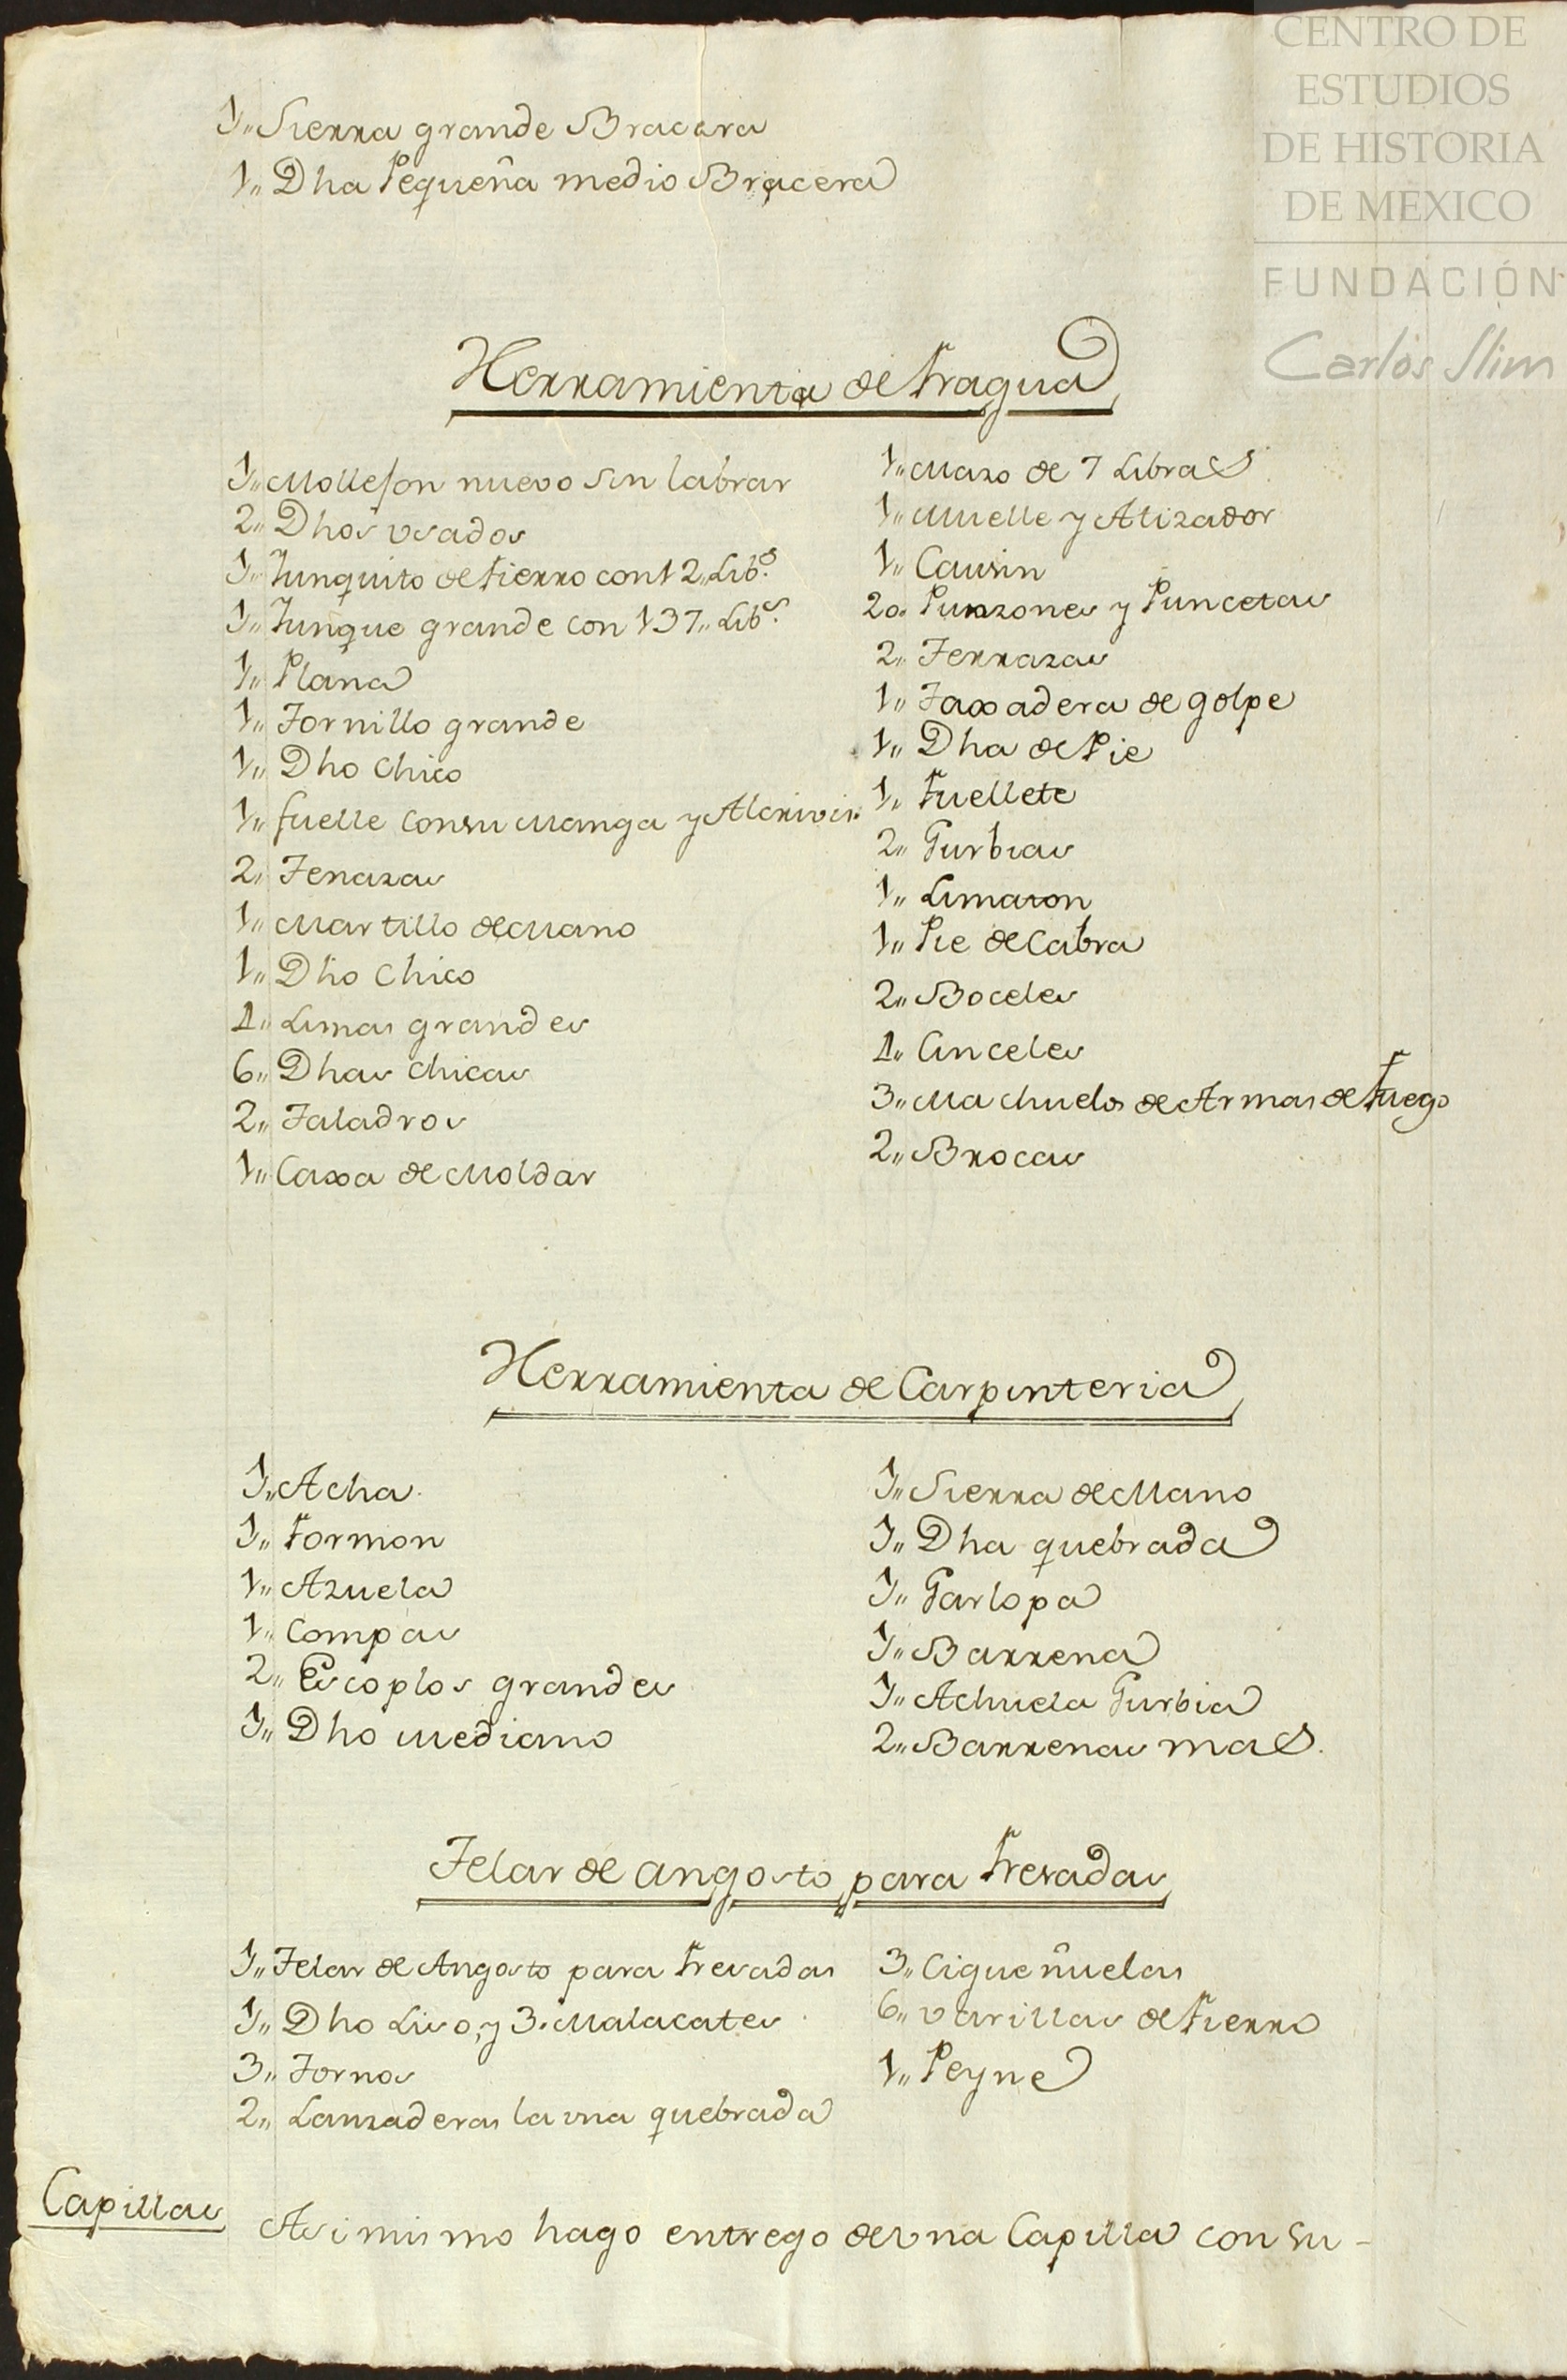 CENTRO DE
ESTUDIOS
DE HISTORIA
DE MEXICO
FUNDACIÓN
Carlos Slim
1,, Sierra grande Bracera
1,, Dha Pequeña medio Bracera
Herramienta de Fragua
1,, Mollejon nuevo Sin labrar
2,, Dhos usados
1,, Yunquito de Fierro con 12,, Lib.s
1,, Yunque grande con 137,, Lib.s
1,, Plana
1,, Tornillo grande
1,, Dho Chico
1,, fuelle Con su Manga y Alcrivis
2,, Tenazas
1,, Martillo de Mano
1,, Dho Chico
1,, Limas grandes
6,, Dhas Chicas
2,, Taladros
1,, Caxa de Moldar
1,, Mazo de 7 Libras
1,, Muelle y Atizador
1,, Causin
20,, Punzones y Puncetas
2,, Terrazas
1,, Taxadera de golpe
1,, Dha de Pie
1,, Fuellete
2,, Gurbias
1,, Limaton
1,, Pie de Cabra
2,, Boceles
1,, Cinceles
3,, Machuelos de Armas de Fuego
2,, Brocas
Herramienta de Carpinteria
1,, Acha
1,, Formon
1,, Azuela
1,, Compas
2,, Escoplos grandes
1,, Dho Mediano
1,, Sierra de Mano
1,, Dha quebrada
1,, Garlopa
1,, Barrena
1,, Achuela Gurbia
2,, Barrenas mas.
Telar de angosto para Fresadas
1,, Telar de Angosto para Fresadas
1,, Dho Liso, y 3. Malacates
3,, Tornos
2,, Lanzaderas la una quebrada
3,, Cigueñuelas
6,, varillas de Fierro
1,, Peyne
Capillas
Asi mismo hago entrego de una Capilla con su -